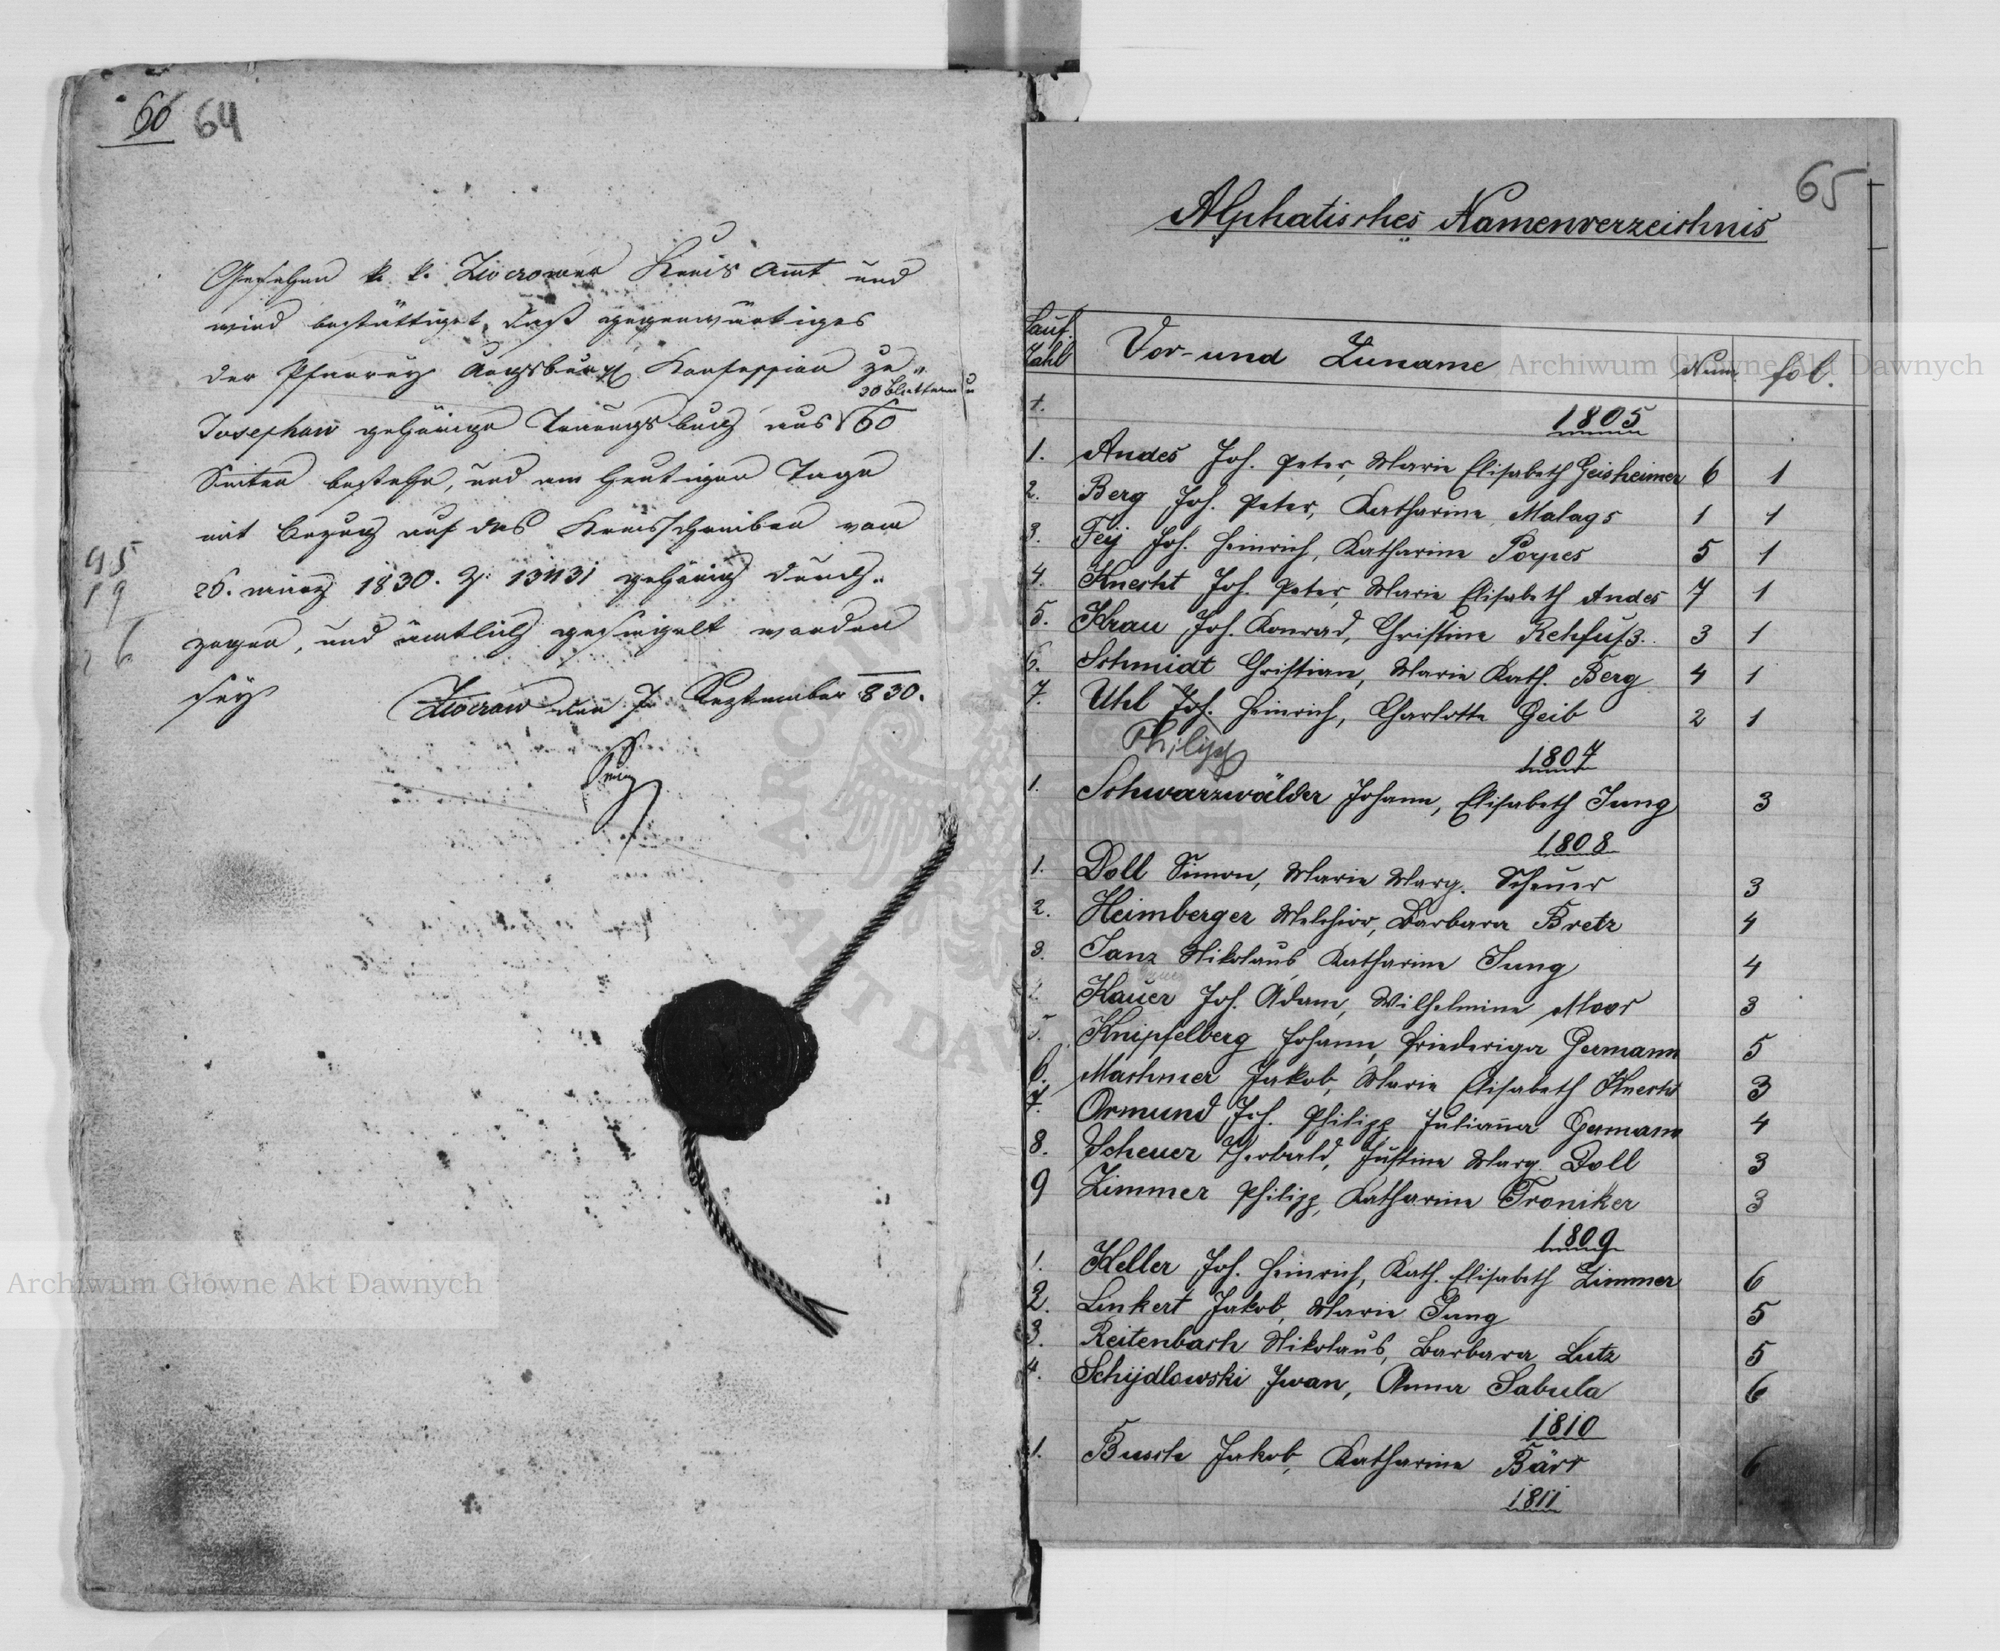 60 64
Gesehen k. k. Zloczower Kreis Amt und
wird bestättiget, daß gegenwärtiges
der Pfarrey Augsburg Konfession zu
30 Blättern u
Josephau gehörige Trauungsbuch aus 60
Seiten bestehe, und am heutigen Tage
mit Bezug auf das Kreisschreiben vom
26. März 1830. Z. 13431 gehörig durch-
zogen, und ämtlich gesiegelt worden
sey
Zloczow den 7. September 830.
95
19
26
65
Alphatisches Namenverzeichnis
Lauf. Zahl Vor- und Zuname Num. fol.
1805
1. Andes Joh. Peter, Marie Elisabeth Geisheimer 6 1
2. Berg Joh. Peter, Katharine Malags 1 1
3. Fey Joh. Heinrich, Katharine Porpes 5 1
4. Knecht Joh. Peter, Marie Elisabeth Andes 7 1
5. Krau Joh. Konrad, Christine Rehfuß 3 1
6. Schmidt Christian, Marie Kath. Berg 4 1
7. Uhl Joh. Heinrich, Charlotte Geib 2 1
Philipp
1807
1. Schwarzwälder Johann, Elisabeth Jung 3
1808
1. Doll Simon, Marie Marg. Scheuer 3
2. Heimberger Melchior, Barbara Bretz 4
3. Janz Nikolaus, Katharine Jung 4
Kauer Joh. Adam, Wilhelmine Moor 3
5. Knipfelberg Johann, Friederiga Germann 5
6. Machmer Jakob, Marie Elisabeth Knecht 3
7. Ormund Joh. Philipp Julianna Germann 4
8. Scheuer Theobald, Justine Marg. Doll 3
9 Zimmer Philipp, Katharine Troniker 3
1809
1. Keller Joh. Heinrich, Kath. Elisabeth Zimmer 6
2. Linkert Jakob, Marie Jung 5
3. Reitenbach Nikolaus, Barbara Lutz 5
4. Schijdlowski Iwan, Anna Sabula 6
1810
1. Busch Jakob, Katharine Bärr 6
1811
Archiwum Główne Akt Dawnych
Archiwum Główne Akt Dawnych